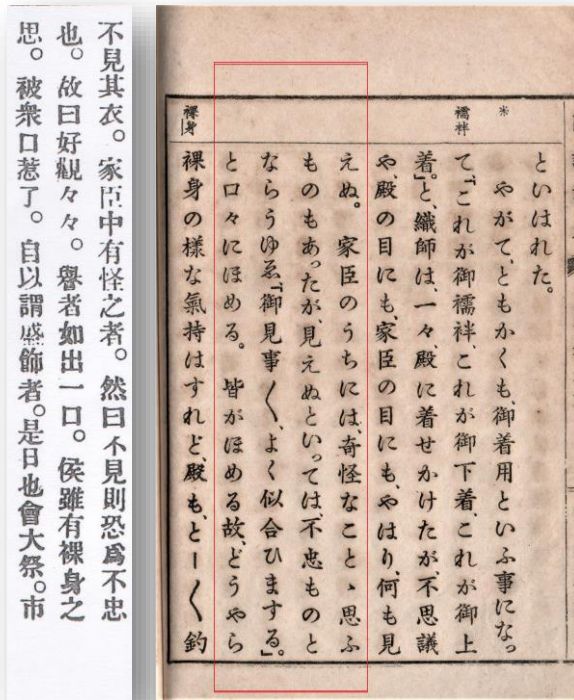 といはれた。
米
やがて、ともかくも、御着用といふ事になっ
襦袢
て、「これが御襦袢、これが御下着、これが御上
着。」と、織師は、一々、殿に着せかけたが、不思議
や、殿の目にも、家臣の目にも、やはり、何も見
えぬ。家臣のうちには、奇怪なことゝ思ふ
ものもあったが、見えぬといっては、不忠ものと
ならうゆゑ、「御見事〱、よく似合ひまする。」
と口々にほめる。皆がほめる故、どうやら
裸身
裸身の様な氣持はすれど、殿も、とー〱釣
不見其衣。家臣中有怪之者。然曰不見則恐爲不忠
也。故曰好観々々。譽者如出一口。侯雖有裸身之
思。被衆口惹了。自以謂盛飾者。是日也會大祭。市